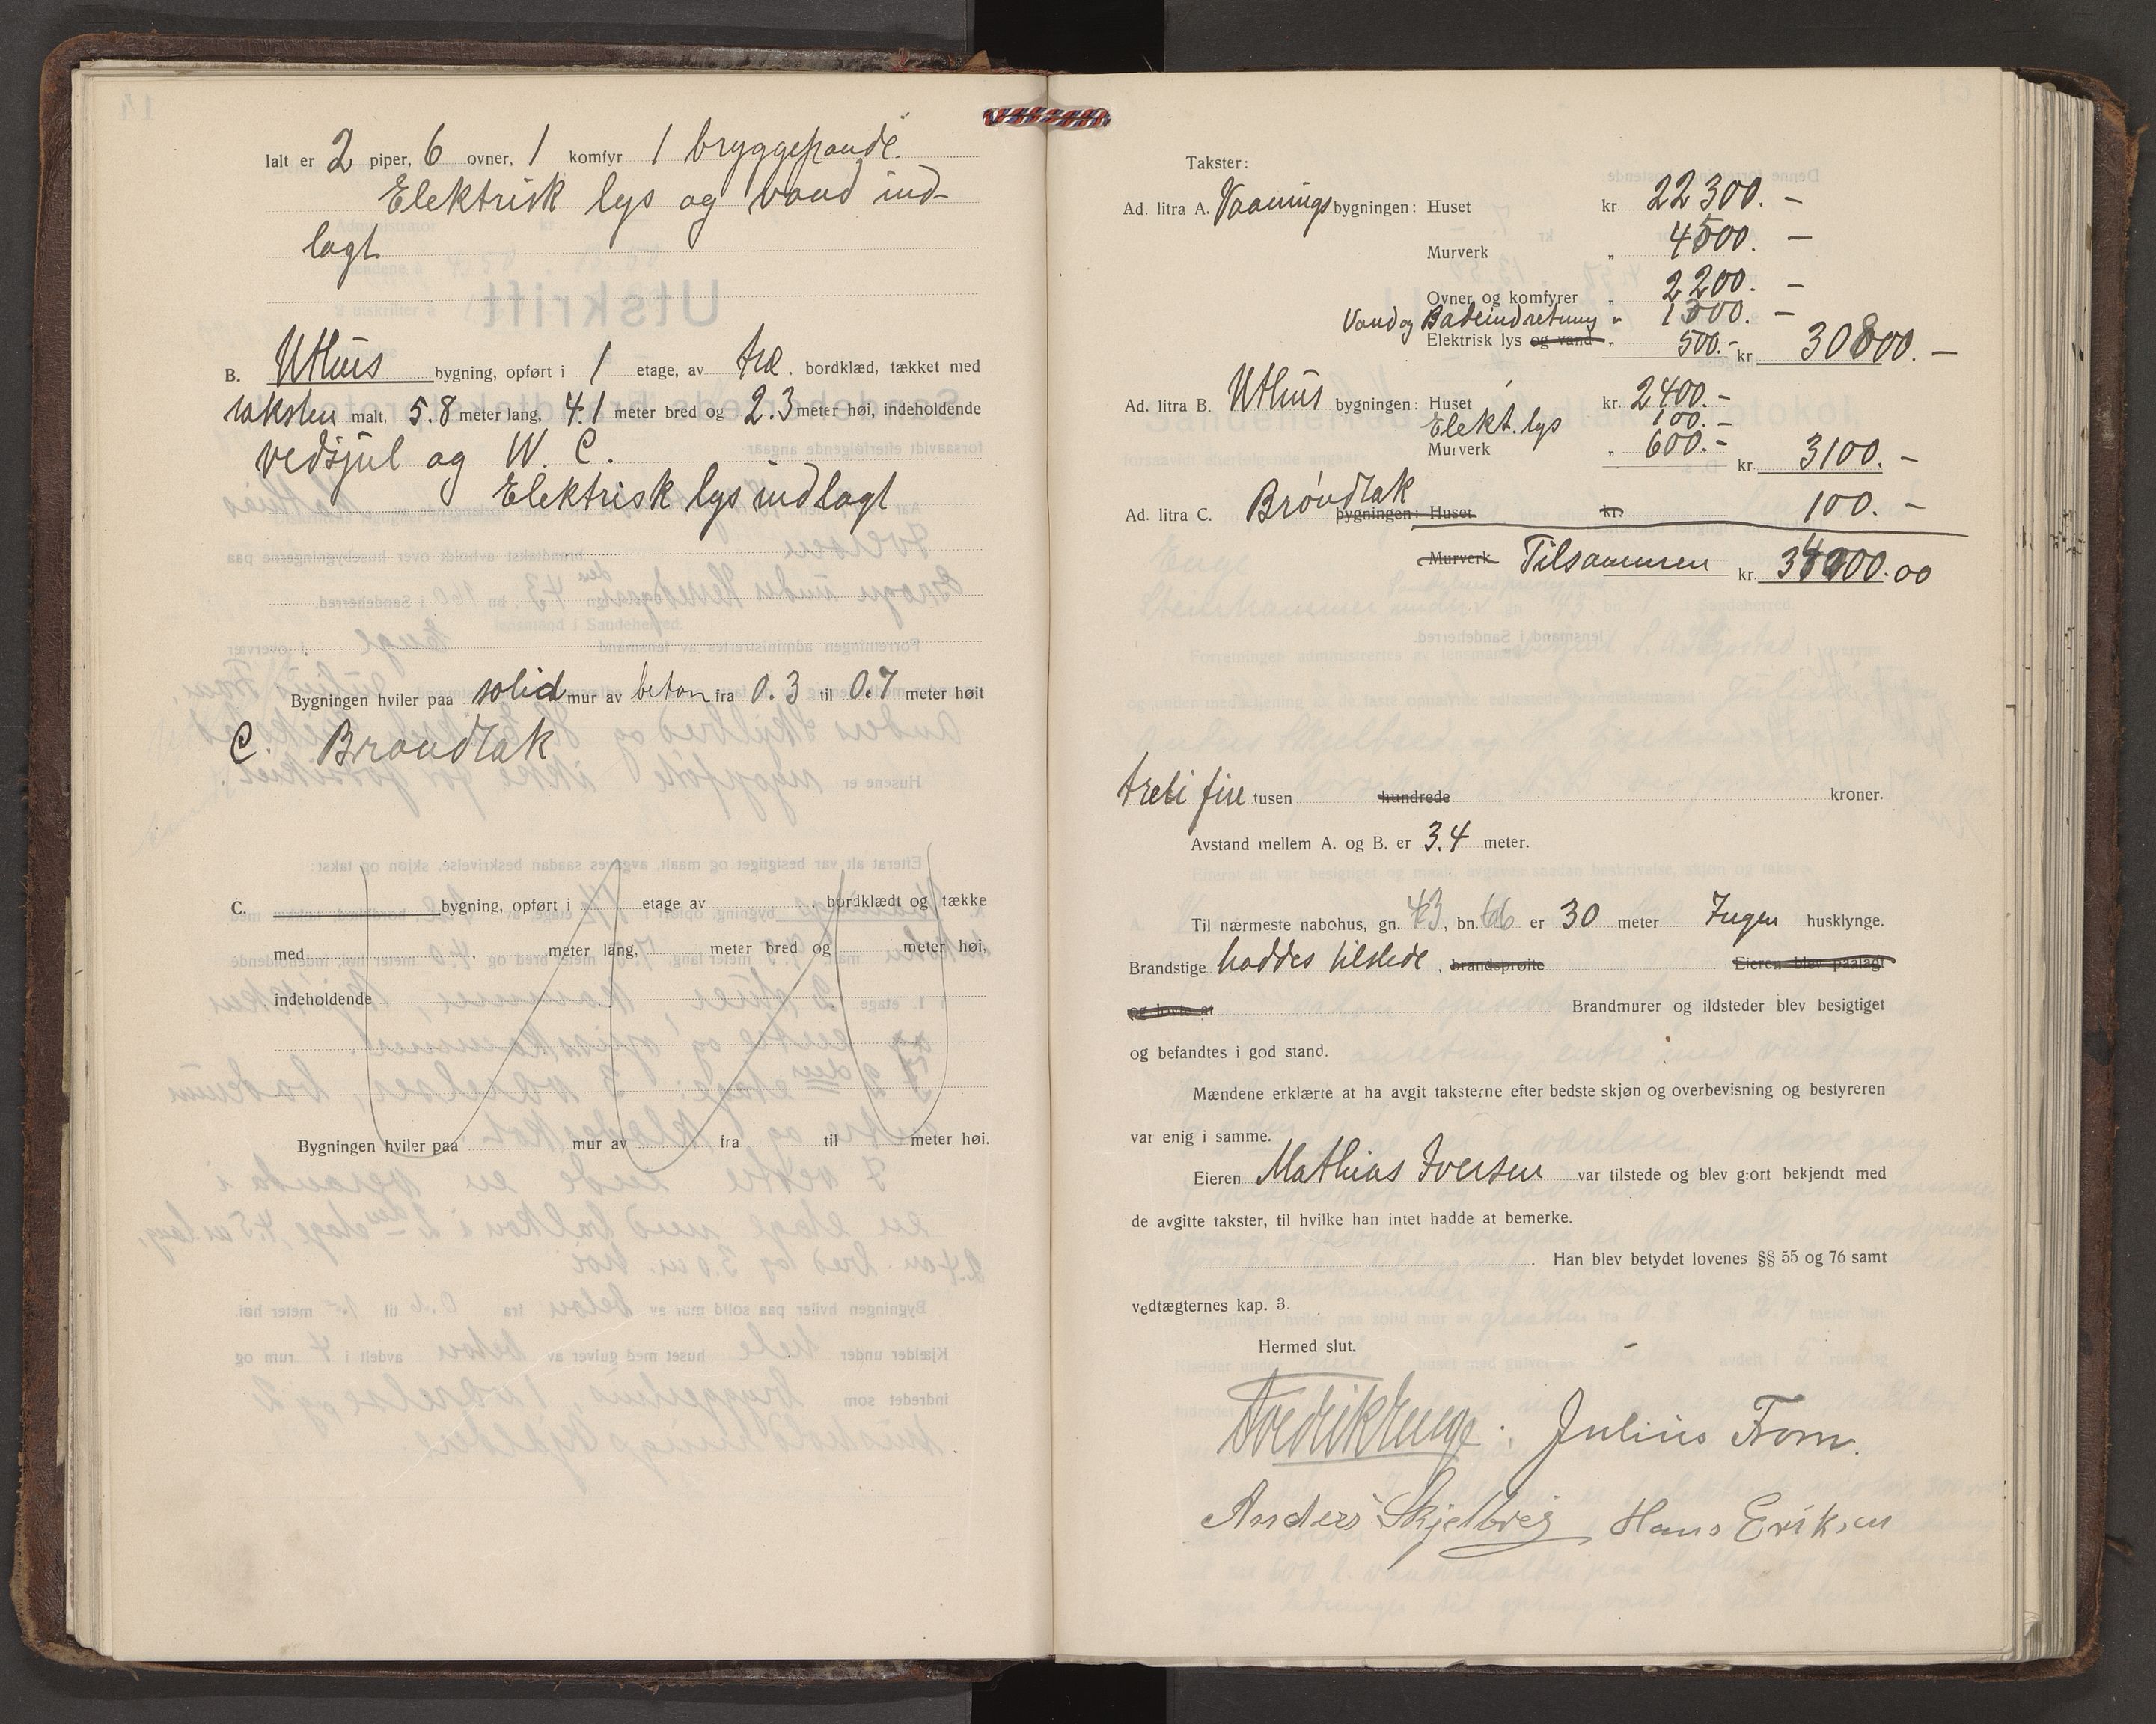 Ialt er 2 piper, 6 ovner, 1 komfyr 1 bryggepande.
Elektrisk lys og vand ind-
lagt
B. Uthus bygning, opført i 1 etage, av træ. bordklæd, tækket med
taksten malt, 5.8 meter lang, 4.1 meter bred og 2.3 meter høi, indeholdende
vedsjul og W. C.
Elektrisk lys indlagt
Bygningen hviler paa solid mur av beton fra 0.3 til 0.7 meter høit
C. Brøndtak
C. bygning, opført i etage av , bordklædt og tække
med , meter lang, meter bred og meter høi,
indeholdende
Bygningen hviler paa mur av fra til meter høi.
Takster:
Ad. litra A. Vaanings bygningen: Huset kr. 22300.-
Murverk „ 4500.-
Ovner og komfyrer „ 2200.-
Vand og Badeindretning „ 1300.-
Elektrisk lys og vand „ 500.- kr. 30800.-
Ad. litra B. Uthus bygningen: Huset kr. 2400.-
Elekt. lys 100.-
Murverk „ 600.- kr. 3100.-
Ad. litra C. Brøndtak bygningen: Huset kr. 100.-
Murverk Tilsammen kr. 34000.00
treti fire tusen hundrede kroner.
Avstand mellem A. og B. er 3.4 meter.
Til nærmeste nabohus, gn. 43, bn. er 30 meter Ingen husklynge.
Brandstige haddes tilstede, brandsprøite Eieren blev paalagt
Brandmurer og ildsteder blev besigtiget
og befandtes i god stand.
Mændene erklærte at ha avgit taksterne efter bedste skjøn og overbevisning og bestyreren
var enig i samme.
Eieren Mathias Iversen var tilstede og blev gjort bekjendt med
de avgitte takster, til hvilke han intet hadde at bemerke.
. Han blev betydet lovenes §§ 55 og 76 samt
vedtægternes kap. 3.
Hermed slut.
Fredrik Enge. Julius Fom.
Anders Skjelbred Hans Eriksen